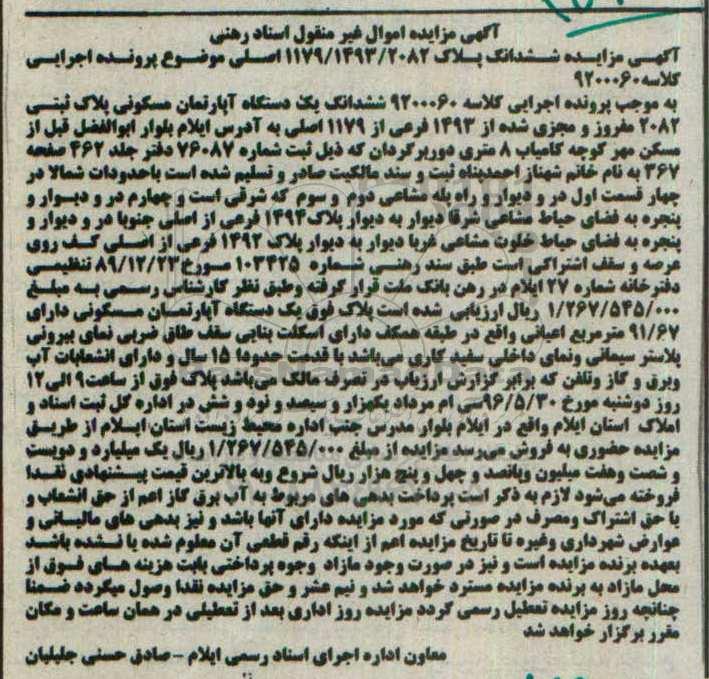 آگهی مزایده اموال غیر منقول اسناد رهنی
آگهی مزایده ششدانگ پلاک ۱۱۷۹/۱۴۹۳/۲۰۸۲ اصلی موضوع پرونده اجرایی
کلاسه ۹۲۰۰۰۶۰
به موجب پرونده اجرایی کلاسه ۹۲۰۰۰۶۰ ششدانگ یک دستگاه آپارتمان مسکونی پلاک ثبتی
۲۰۸۲ مفروز و مجزی شده از ۱۴۹۳ فرعی از ۱۱۷۹ اصلی به آدرس ایلام بلوار ابوالفضل قبل از
مسکن مهر کوچه کامیاب ۸ متری دوربرگردان که ذیل ثبت شماره ۷۶۰۸۷ دفتر جلد ۴۶۲ صفحه
۳۶۷ به نام خانم شهناز احمدپناه ثبت و سند مالکیت صادر و تسلیم شده است باحدودات شمالا در
چهار قسمت اول در و دیوار و راه پله مشاعی دوم و سوم که شرقی است و چهارم در و دیوار و
پنجره به فضای حیاط مشاعی شرقا دیوار به دیوار پلاک ۱۴۹۴ فرعی از اصلی جنوبا در و دیوار و
پنجره به فضای حیاط خلوت مشاعی غربا دیوار به دیوار پلاک ۱۴۹۲ فرعی از اصلی کف روی
عرصه و سقف اشتراکی است طبق سند رهنی شماره ۱۰۳۴۲۵ مورخ ۸۹/۱۲/۲۳ تنظیمی
دفترخانه شماره ۲۷ ایلام در رهن بانک ملت قرار گرفته وطبق نظر کارشناس رسمی به مبلغ
۱/۲۶۷/۵۴۵/۰۰۰ ریال ارزیابی شده است پلاک فوق یک دستگاه آپارتمان مسکونی دارای
۹۱/۶۷ مترمربع اعیانی واقع در طبقه همکف دارای اسکلت بنایی سقف طاق ضربی نمای بیرونی
پلاستر سیمانی ونمای داخلی سفید کاری می‌باشد با قدمت حدودا ۱۵ سال و دارای انشعابات آب
وبرق و گاز وتلفن که برابر گزارش ارزیاب در تصرف مالک می‌باشد پلاک فوق از ساعت ۹ الی ۱۲
روز دوشنبه مورخ ۹۶/۵/۳۰ سی ام مرداد یکهزار و سیصد و نود و شش در اداره کل ثبت اسناد و
املاک استان ایلام واقع در ایلام بلوار مدرس جنب اداره محیط زیست استان ایلام از طریق
مزایده حضوری به فروش می‌رسد مزایده از مبلغ ۱/۲۶۷/۵۴۵/۰۰۰ ریال یک میلیارد و دویست
و شصت وهفت میلیون وپانصد و چهل و پنج هزار ریال شروع وبه بالاترین قیمت پیشنهادی نقدا
فروخته می‌شود لازم به ذکر است پرداخت بدهی های مربوط به آب برق گاز اعم از حق انشعاب و
یا حق اشتراک ومصرف در صورتی که مورد مزایده دارای آنها باشد و نیز بدهی های مالیاتی و
عوارض شهرداری وغیره تا تاریخ مزایده اعم از اینکه رقم قطعی آن معلوم شده یا نشده باشد
بعهده برنده مزایده است و نیز در صورت وجود مازاد وجوه پرداختی بابت هزینه های فوق از
محل مازاد به برنده مزایده مسترد خواهد شد و نیم عشر و حق مزایده نقدا وصول میگردد ضمنا
چنانچه روز مزایده تعطیل رسمی گردد مزایده روز اداری بعد از تعطیلی در همان ساعت و مکان
مقرر برگزار خواهد شد
معاون اداره اجرای اسناد رسمی ایلام - صادق حسنی جلیلیان